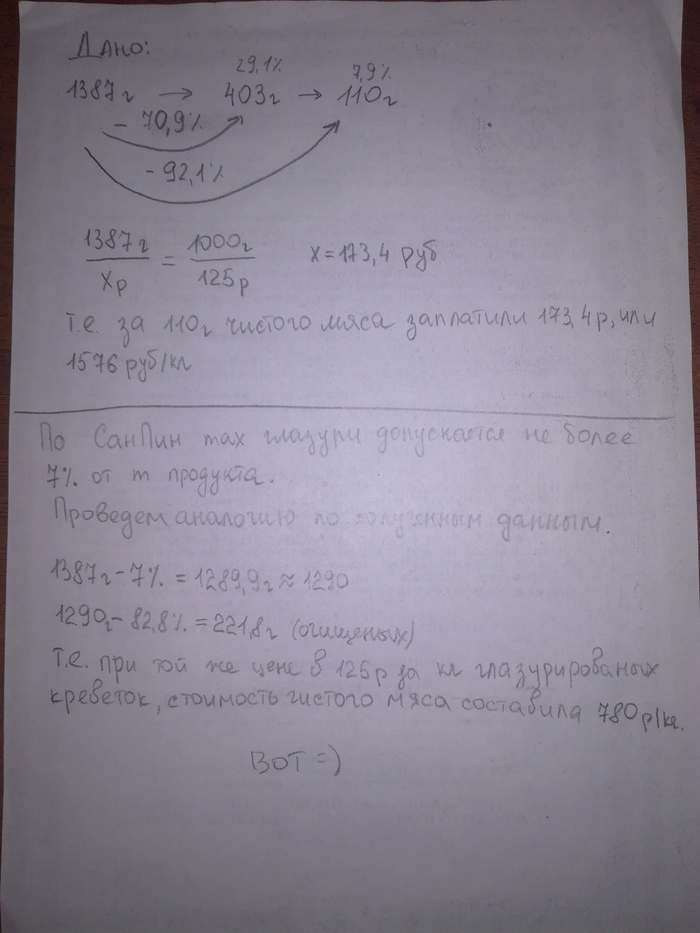 Дано:
29,1% 7,9%
1387г → 403г → 110г
- 70,9%
- 92,1%
1387г / Xр = 1000г / 125р x=173,4 руб
Т.е. за 110г чистого мяса заплатили 173,4р, или
1576 руб/кг
По СанПин max глазури допускается не более
7% от m продукта.
Проведем аналогию по полученным данным.
1387г-7% = 1289,9г ≈ 1290
1290г- 82,8% = 221,8г (очищеных)
Т.е. при той же цене в 125р за кг глазурированых
креветок, стоимость чистого мяса составила 780р/кг.
ВОТ =)